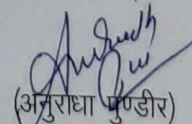 (अनुराधा पुण्डीर)